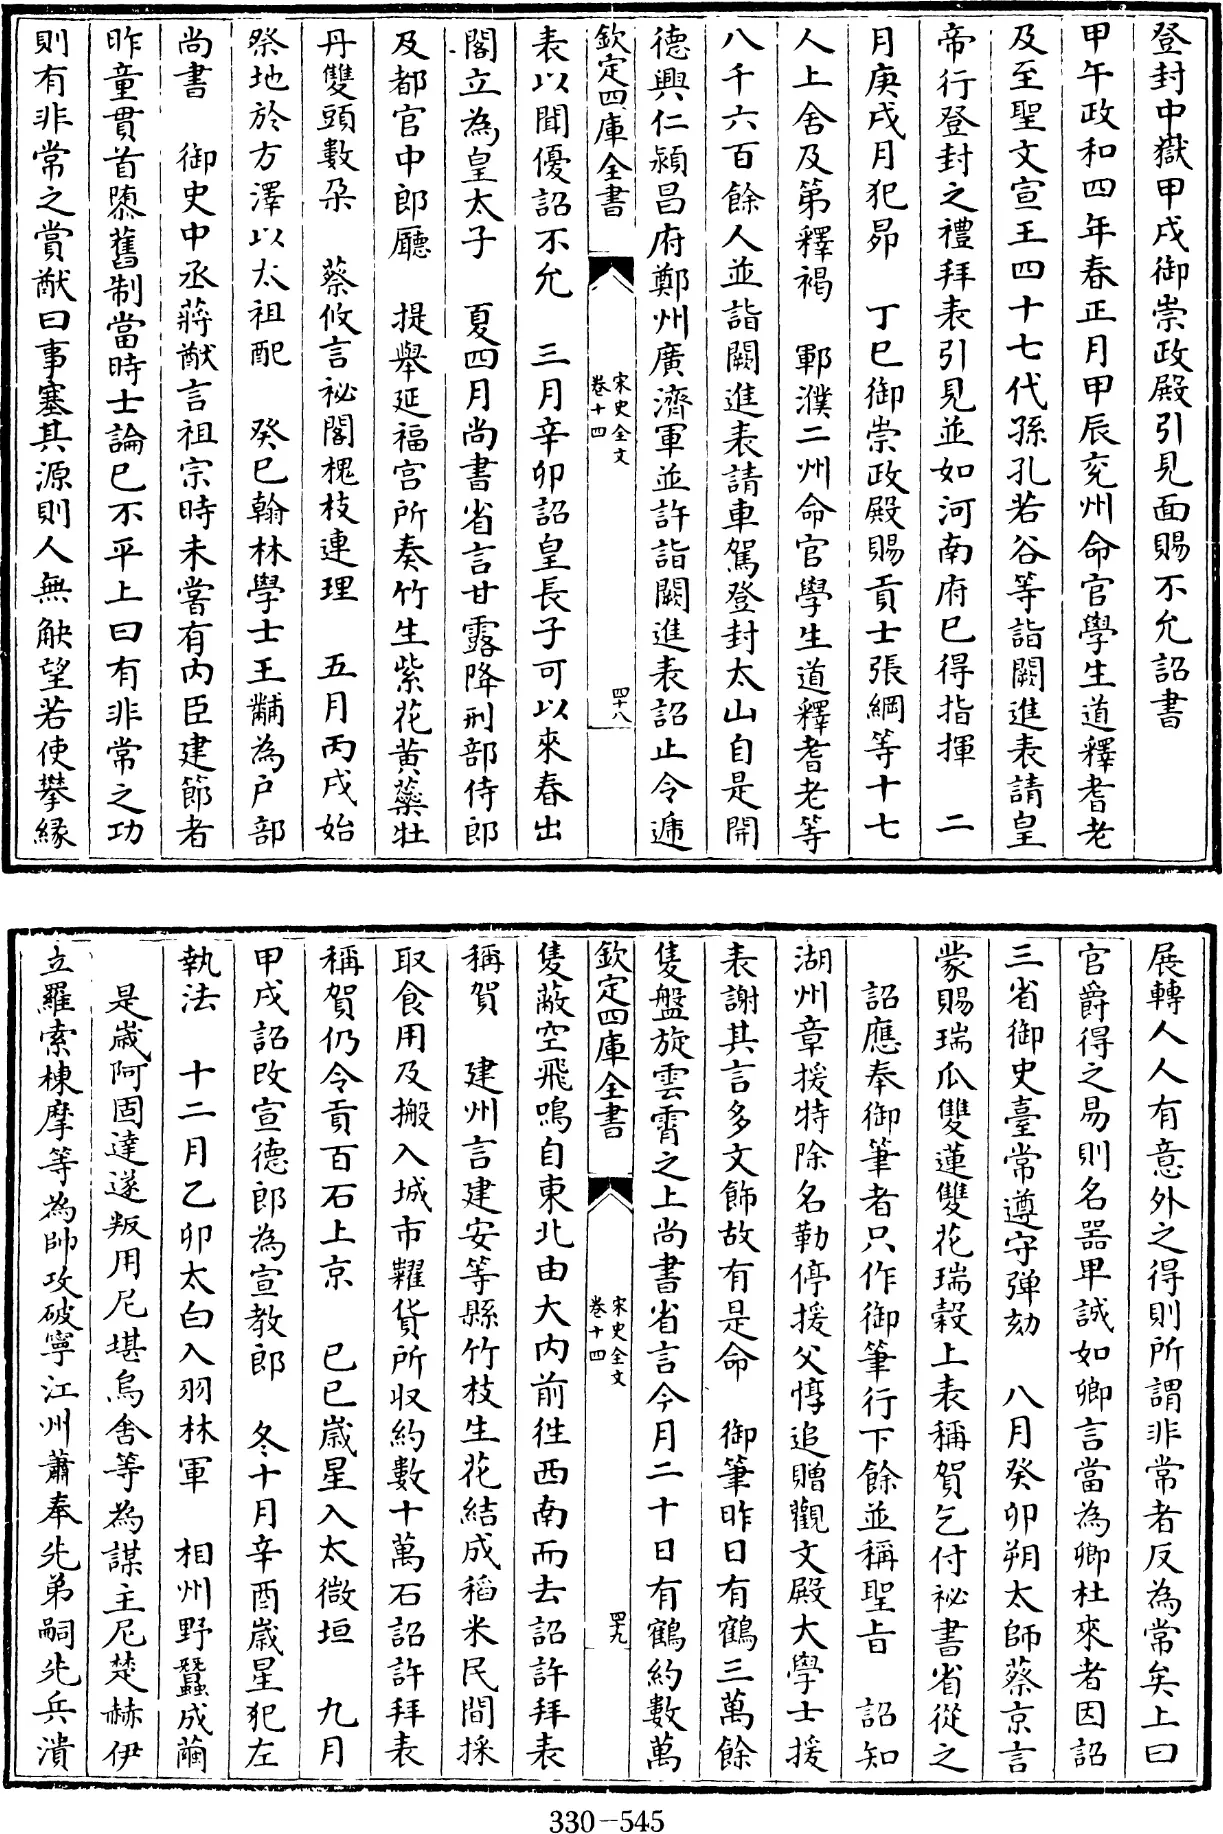 登封中嶽甲戌御崇政殿引見面賜不允詔書
甲午政和四年春正月甲辰兖州命官學生道釋耆老
及至聖文宣王四十七代孫孔若谷等詣闕進表請皇
帝行登封之禮拜表引見並如河南府已得指揮　二
月庚戌月犯昴　丁巳御崇政殿賜貢士張綱等十七
人上舍及第釋褐　鄆濮二州命官學生道釋耆老等
八千六百餘人並詣闕進表請車駕登封太山自是開
德興仁潁昌府鄭州廣濟軍並許詣闕進表詔止令逓
欽定四庫全書
宋史全文
卷十四
四十八
表以聞優詔不允　三月辛卯詔皇長子可以來春出
閣立為皇太子　夏四月尚書省言甘露降刑部侍郎
及都官中郎廳　提舉延福宫所奏竹生紫花黄蘂牡
丹雙頭數朶　蔡攸言祕閣槐枝連理　五月丙戌始
祭地於方澤以太祖配　癸巳翰林學士王黼為户部
尚書　御史中丞蔣猷言祖宗時未嘗有内臣建節者
昨童貫首隳舊制當時士論已不平上曰有非常之功
則有非常之賞猷曰事塞其源則人無觖望若使攀緣
展轉人人有意外之得則所謂非常者反為常矣上曰
官爵得之易則名器卑誠如卿言當為卿杜來者因詔
三省御史臺常遵守彈劾　八月癸卯朔太師蔡京言
蒙賜瑞瓜雙蓮雙花瑞穀上表稱賀乞付祕書省從之
詔應奉御筆者只作御筆行下餘並稱聖旨　詔知
湖州章援特除名勒停援父惇追贈觀文殿大學士援
表謝其言多文飾故有是命　御筆昨日有鶴三萬餘
隻盤旋雲霄之上尚書省言今月二十日有鶴約數萬
欽定四庫全書
宋史全文
卷十四
四十九
隻蔽空飛鳴自東北由大内前往西南而去詔許拜表
稱賀　建州言建安等縣竹枝生花結成稻米民間採
取食用及搬入城市糶貨所收約數十萬石詔許拜表
稱賀仍令貢百石上京　己巳嵗星入太微垣　九月
甲戌詔改宣德郎為宣教郎　冬十月辛酉嵗星犯左
執法　十二月乙卯太白入羽林軍　相州野蠶成繭
是嵗阿固達遂叛用尼堪烏舍等為謀主尼楚赫伊
立羅索棟摩等為帥攻破寧江州蕭奉先弟嗣先兵潰
330-545